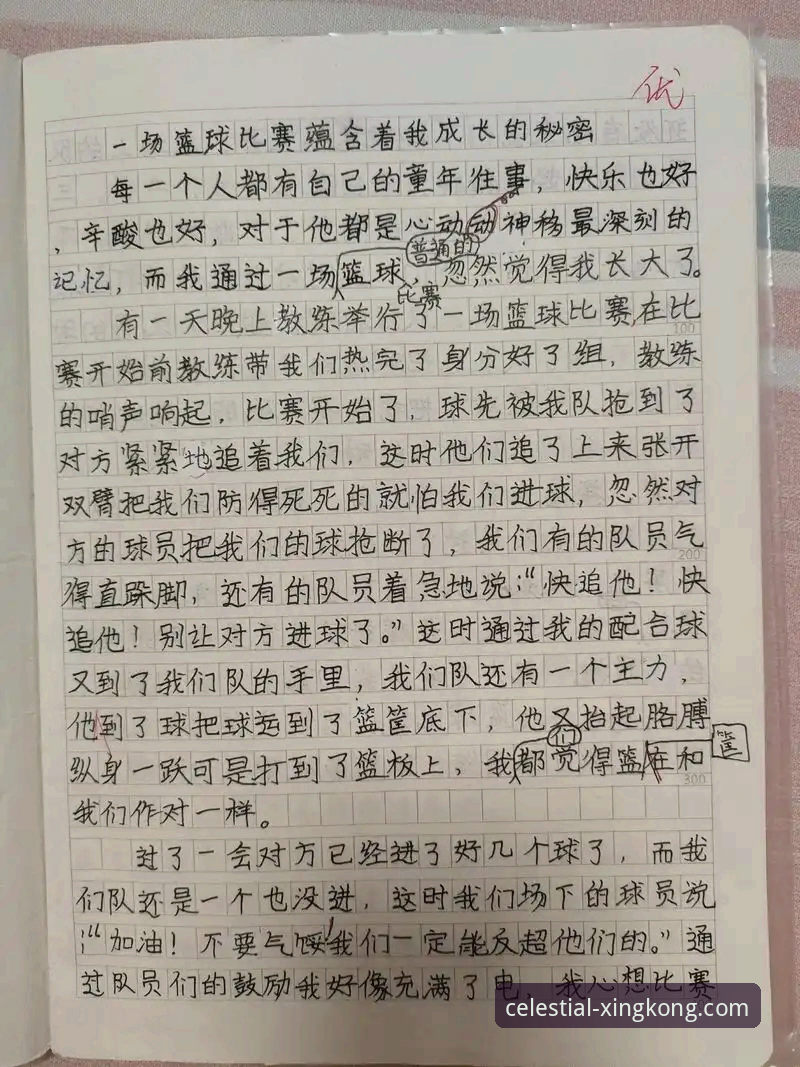 优
一场篮球比赛蕴含着我成长的秘密
每一个人都有自己的童年往事，快乐也好
，辛酸也好，对于他都是心动动神移最深刻的
普通的
记忆，而我通过一场篮球，忽然觉得我长大了。
比赛
有一天晚上教练举行了一场篮球比赛，在比
100
赛开始前教练带我们热完了身分好了组，教练
的哨声响起，比赛开始了，球先被我队抢到了
对方紧紧地追着我们，这时他们追了上来张开
双臂把我们防得死死的就怕我们进球，忽然对
方的球员把我们的球抢断了，我们有的队员气
200
得直跺脚，还有的队员着急地说：“快追他！快
追他！别让对方进球了。”这时通过我的配合球
又到了我们队的手里，我们队还有一个主力，
他到了球把球运到了篮筐底下，他又抬起胳膊
们
筐
纵身一跃可是打到了篮板上，我都觉得篮在和
300
我们作对一样。
过了一会对方已经进了好几个球了，而我
们队还是一个也没进，这时我们场下的球员说
：“加油！不要气馁！我们一定能反超他们的。”通
过队员们的鼓励我好像充满了电，我心想比赛
celestial-xingkong.com